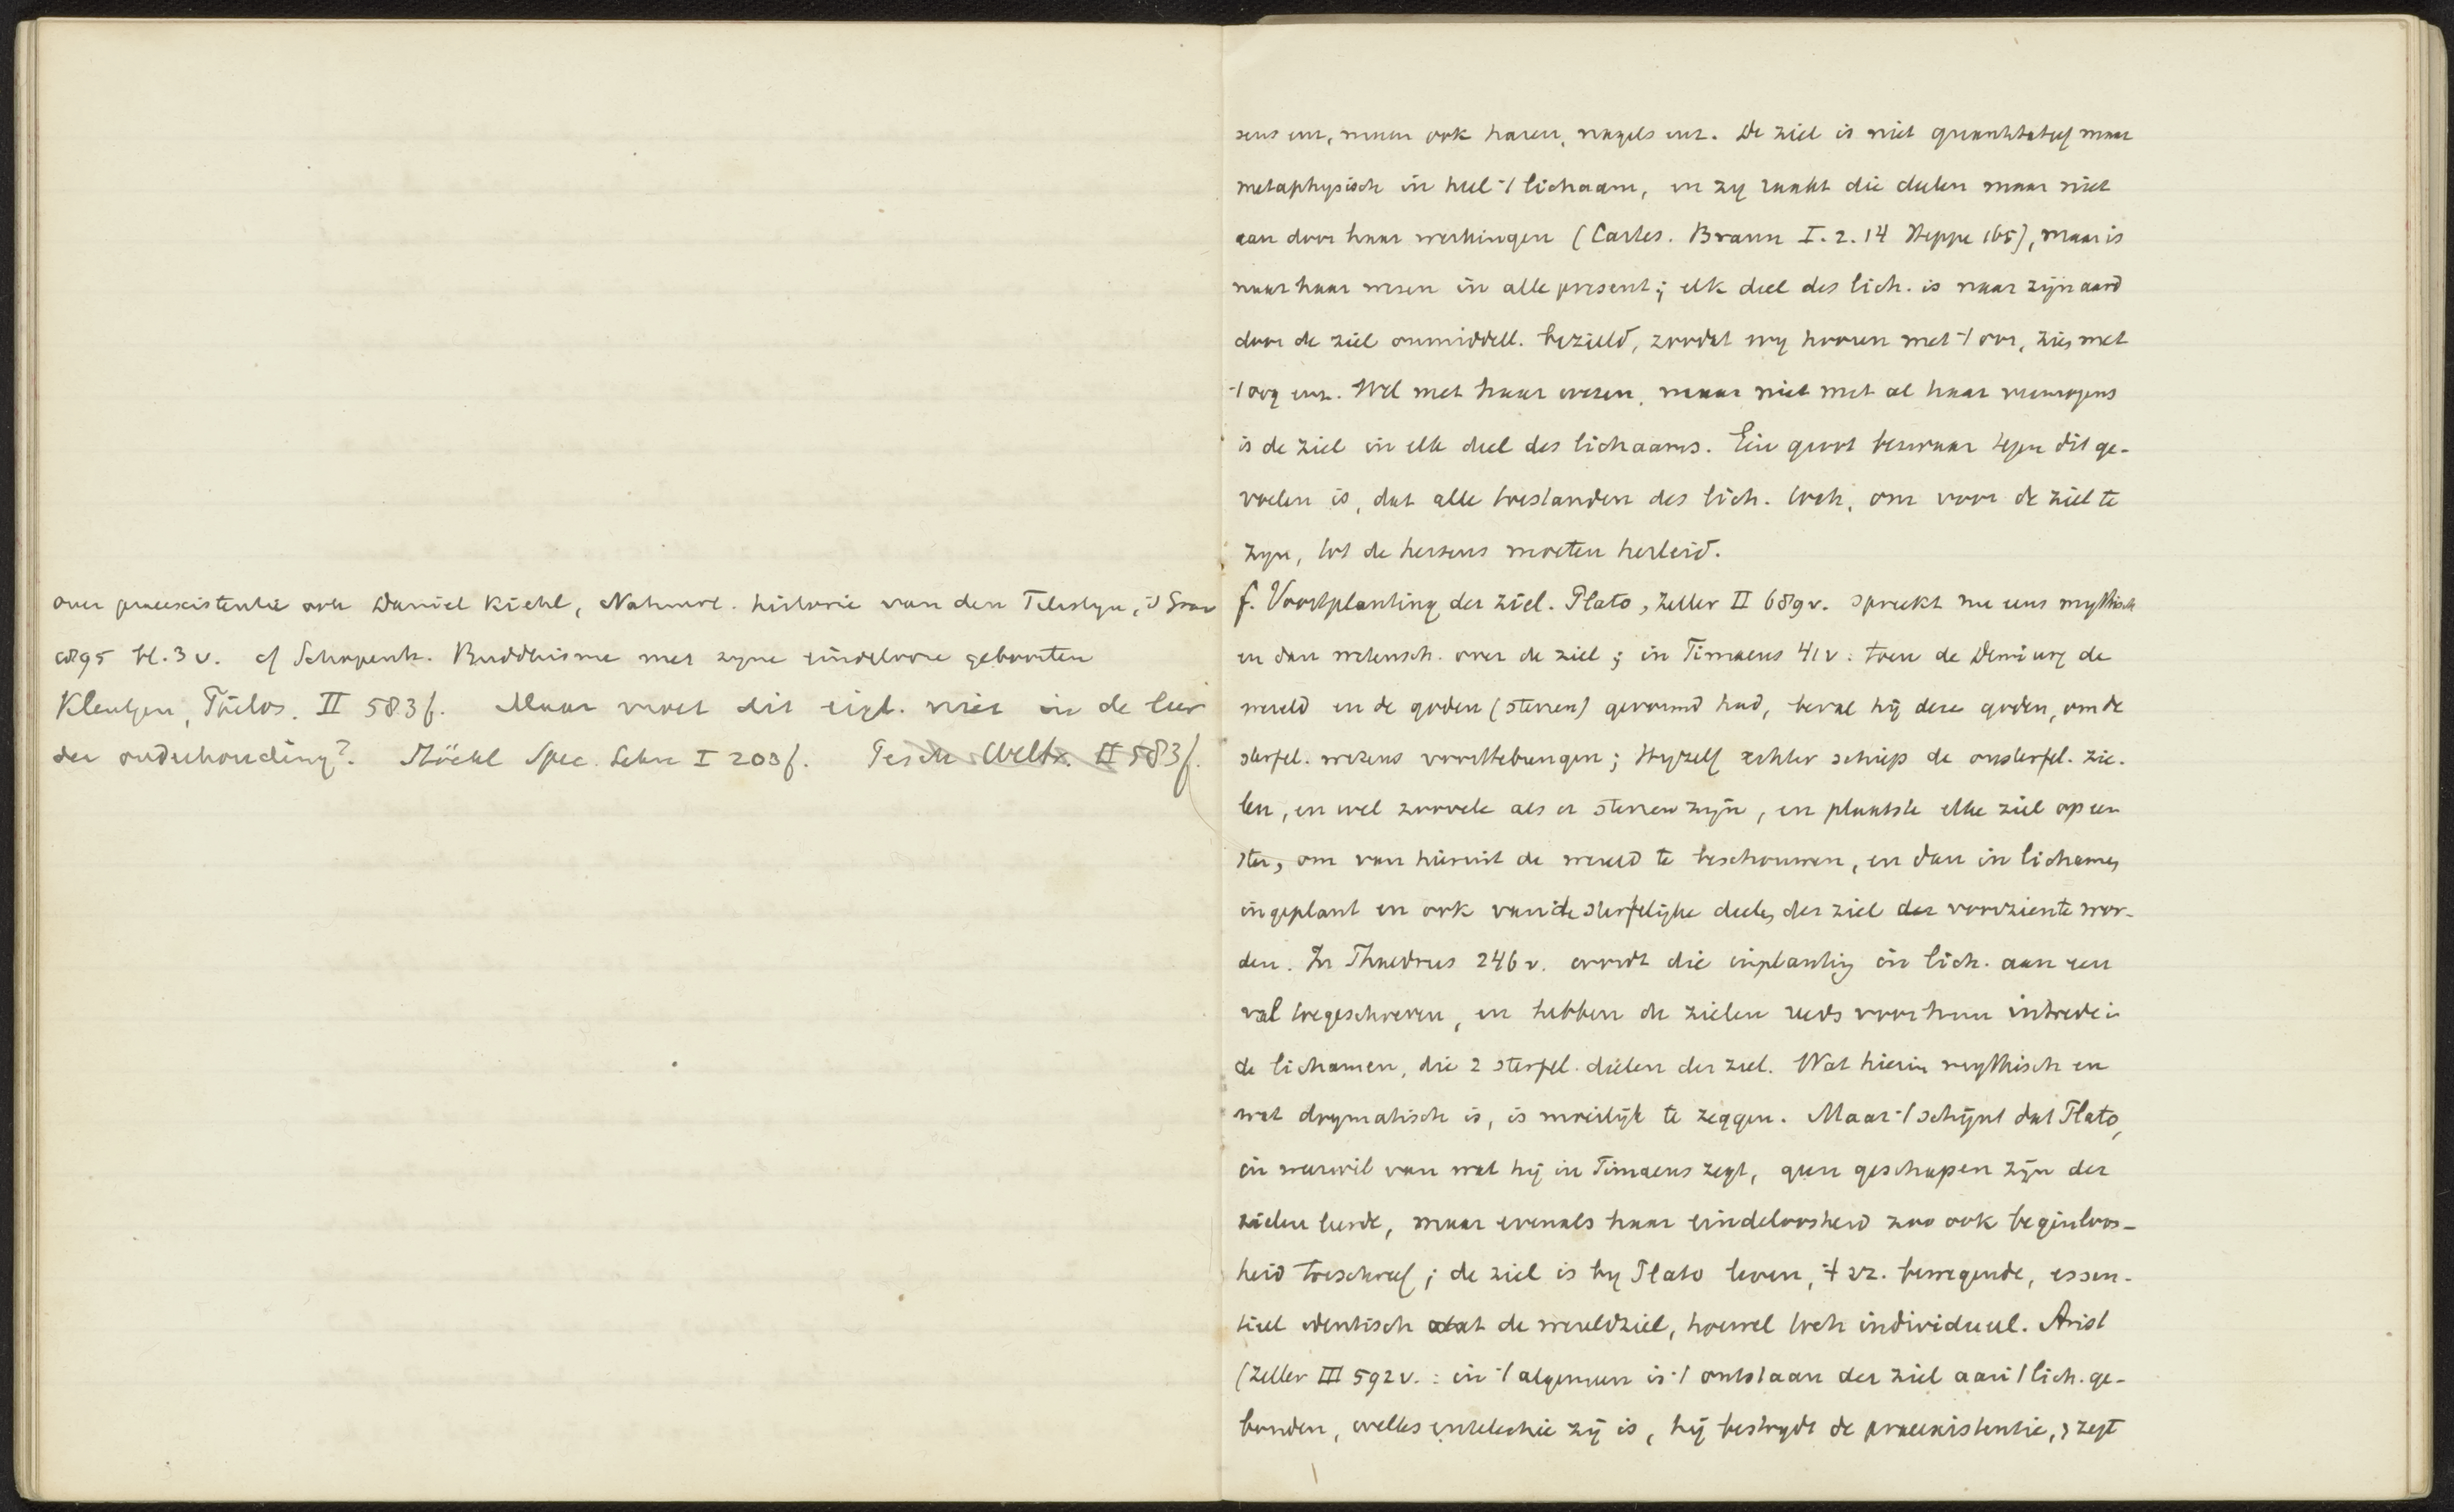 over praeexistentie ook Daniel Kiehl, Natuurl. historie van den Teleslyn, 's Grav
1895 bl. 3 v. cf Schopenh. Buddhisme met zyne eindelooze geboorten
Kleutgen, Philos. II 583 f. Maar moet dit eigl. niet in de leer
der onderhouding? Stöckl Spec. Lehre I 203 f. Pesch Weltr. II 583 f.
sens enz, maar ook haren, nagels enz. De ziel is niet quantitatief maar
metaphysisch in heel 't lichaam, en zy raakt die deelen maar niet
aan door haar werkingen (Cartes. Braun I. 2. 14 Heppe 165), maar is
naar haar wezen in alle present; elk deel des lich. is naar zijn aard
door de ziel onmiddell. bezield, zoodat wy hooren met 't oor, zien met
't oog enz. Wel met haar wezen, maar niet met al haar vermogens
is de ziel in elk deel des lichaams. Een groot bezwaar tegen dit ge-
voelen is, dat alle toestanden des lich. toch, om voor de ziel te
zyn, tot de hersens moeten herleid.
f. Voortplanting der ziel. Plato, Zeller II 689 v. spreekt nu eens mythisch
en dan wetensch. over de ziel; in Timaeus 41 v: toen de Demiurg de
wereld en de goden (sterren) gevormd had, beval hij deze goden, om de
sterfel. wezens voorttebrengen; Hyzelf echter schiep de onsterfel. zie-
len, en wel zoovele als er sterren zijn, en plaatste elke ziel op een
ster, om van hieruit de wereld te beschouwen, en dan in lichamen
ingeplant en ook van de sterfelijke deelen der ziel der voorzien te wor-
den. In Phaedrus 246 v. wordt die inplanting in lich. aan een
val toegeschreven, en hebben de zielen reeds voor hun intrede in
de lichamen, die 2 sterfel. deelen der ziel. Wat hierin mythisch en
wat dogmatisch is, is moeilijk te zeggen. Maar 't schijnt dat Plato,
in weerwil van wat hij in Timaeus zegt, geen geschapen zijn der
zielen leerde, maar evenals haar eindeloosheid zoo ook beginloos-
heid toeschreef; de ziel is by Plato leven, 't zz. bewegende, essen-
tieel identisch met de wereldziel, hoewel toch individueel. Arist
(Zeller III 592 v. : in 't algemeen is 't ontstaan der ziel aan 't lich. ge-
bonden, welks entelechie zij is, hij bestrydt de praeexistentie, zegt